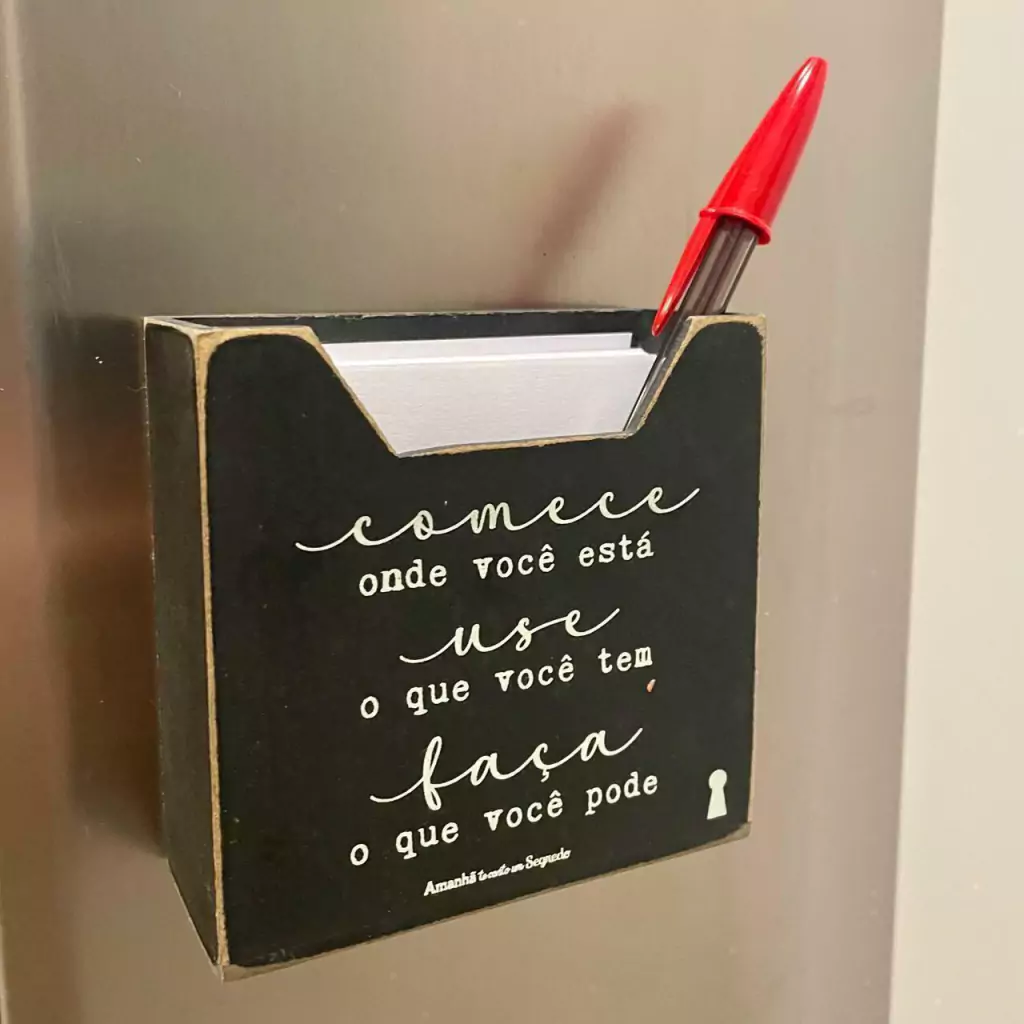 comece
onde você está
use
o que você tem
faça
o que você pode
Amanhã te conto um Segredo